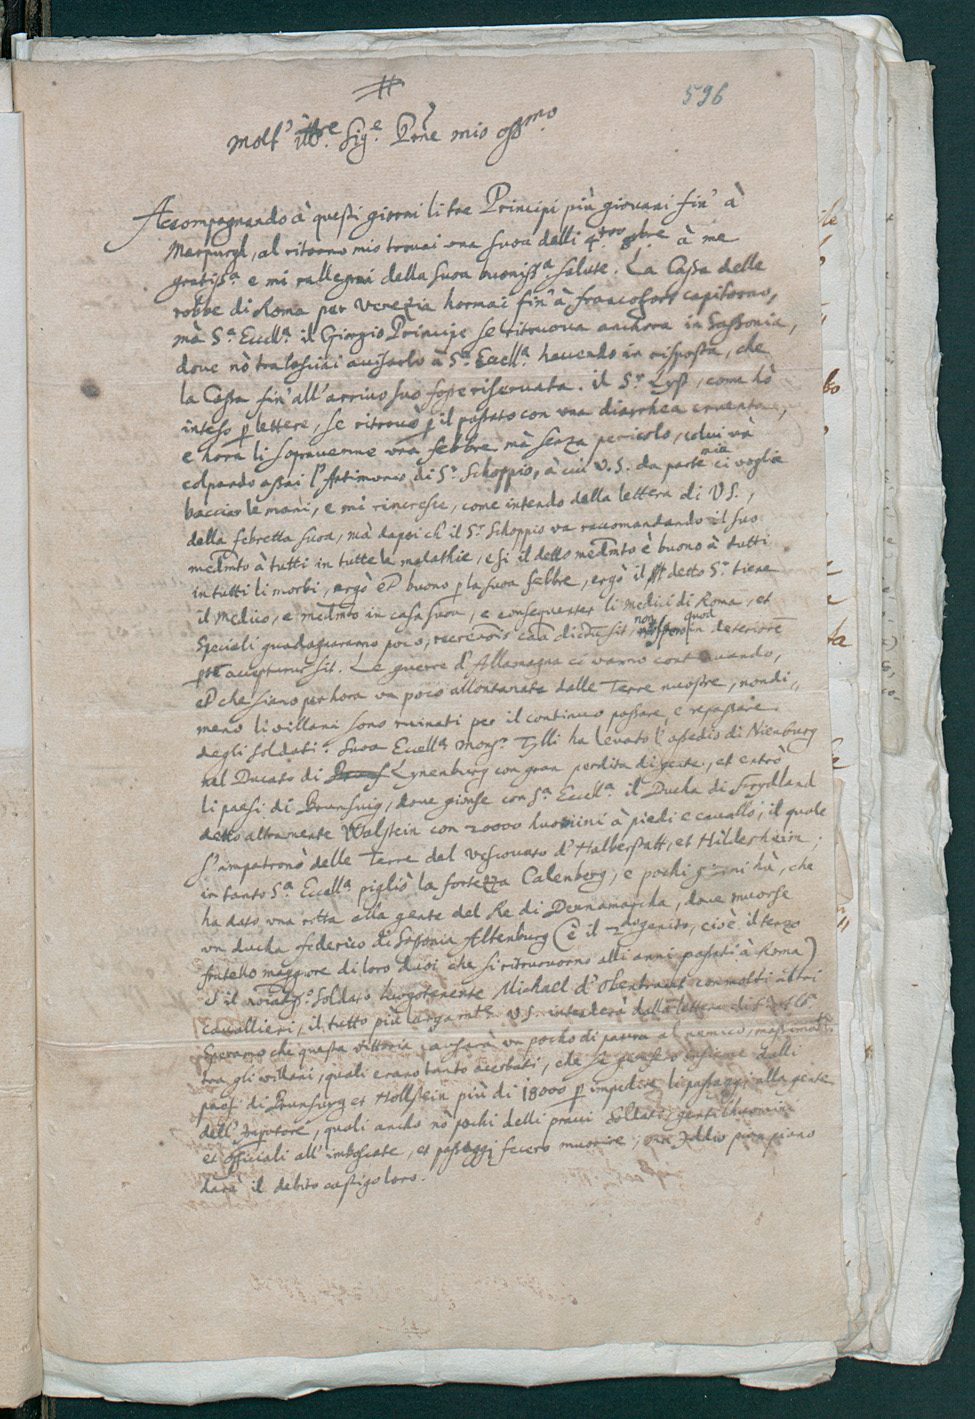 596
Molt' ill.re Sig.e Prne mio oss.mo
Accompagnando à questi giorni li tre Principi più giovani fin' à
Marpurgh, al ritorno mio trovai una sua delli 4. 8bre à me
gratiss.a e mi rallegrai della sua buoniss.a salute. La Cassa delle
robbe di Roma per Venezia hormai fin' à francofort capitorno,
mà S.a Eccll.a il Giorgio Principe se ritruova anchora in Sassonia,
dove nō tralasciai avisarlo à S.a Eccell.a havendo in risposta, che
la Cassa fin' all' arrivo suo fosse riservata. il S.r Lyss, como hò
inteso p lettere, se ritrovò p il passato con una diarrhea cruenta,
e hora li sopravenne una febbre mà senza pericolo, colui và
colpando assai l'Antimonio di S.r Schoppio, à cui V.S. da parte mia ci voglia
bacciar le mani, e mi rincresce, come intendo della lettera di VS.,
della febretta sua, mà dapoi ch' il S.r Schoppio va raccomandando il suo
medmto à tutti in tutte le malathie, e si il detto medmto è buono à tutti
in tutti li morbi, ergò è buono p la sua febbre, ergò il detto S.r tiene
il medico, e medmto in casa sua, e consequenter li medici di Roma, et
Speciali guadagnaranno poco, non quod in deteriorē
accepturus sit. Le guerre d'Allamagna ci vanno continuando,
et che siano per hora un poco allontanate dalle Terre nuostre, nondi„
meno li villani sono ruinati per il continuo passare e repassare
degli soldati. Sua Eccell.a Mons.r Tylli ha levato l'assedio di Nienburg
nel Ducato di Lynenburg con gran perdita di gente, et entrò
li paesi di Brunsuig, dove gionse con S.a Eccll.a il Ducha di Frydland
detto altramente Walstein con 20000 huomini à piedi e cavallo, il quale
s'impatronò delle Terre del Vescovato d'Halberstatt, et Hildesheim,
in tanto S.a Eccell.a pigliò la fortezza Calenberg, e pochi giorni hà, che
ha dato una rotta alla gente del Re di Dennamarcha, dove muorse
un ducha federico di Sassonia Altenburg (è il genito, cioè il terzo
fratello maggiore di loro duoi che si ritruovorno alli anni passati à Roma)
et il soldato luogotenente Michael d'Obentraut con molti altri
cavallieri, il tutto più larga mte V.S. intenderà dalla lettera di
Speramo che questa vittoria causarà un pocho di paura al nemico,
tra gli villani, quali erano tanto acerbati, che si insieme delli
paesi di Brunsuig et Hollstein più di 18000 p impedire li passaggi alla gente
dell' Impatore, quali ancho nō pochi delli bravi soldati, gentilhuomini
et officiali all' imboscate, et passaggi fecero muorire, Iddio pian piano
darà il debito castigo loro.